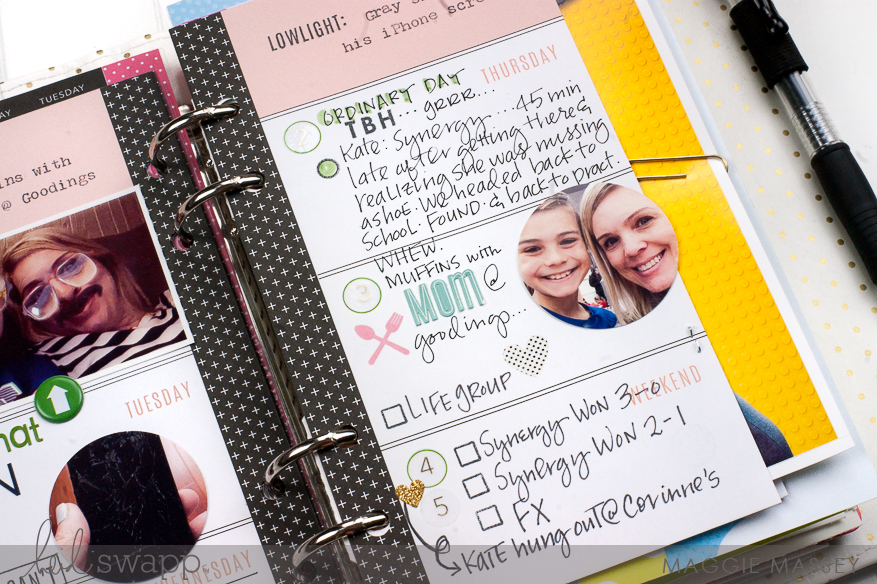 TUESDAY
ins with
@ Goodings
TUESDAY
hat
N
WEDNESDAY
LOWLIGHT: Gray
his iPhone scre
THURSDAY
2
ORDINARY DAY
TBH... GRRR...
Kate: Synergy...45 min
late after getting there &
realizing she was missing
a shoe. We headed back to
school. FOUND & back to pract.
WHEW.
3
MUFFINS with
MOM @
goodings...
LIFE GROUP
WEEKEND
4
Synergy WON 3-0
Synergy WON 2-1
5
FX
KATE hung out @ Corinne's
heidi swapp.
MAGGIE MASSEY